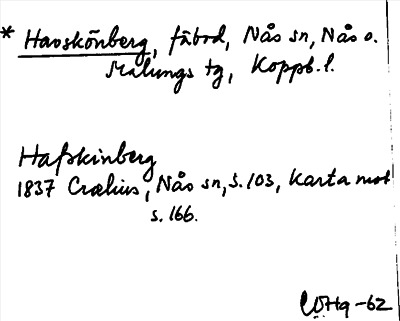 * Havskönberg, fäbod, Nås sn, Nås o.
Malungs tg, Koppb. l.
Hafskinberg
1837 Crælius, Nås sn, s. 103, Karta mot
s. 166.
-62